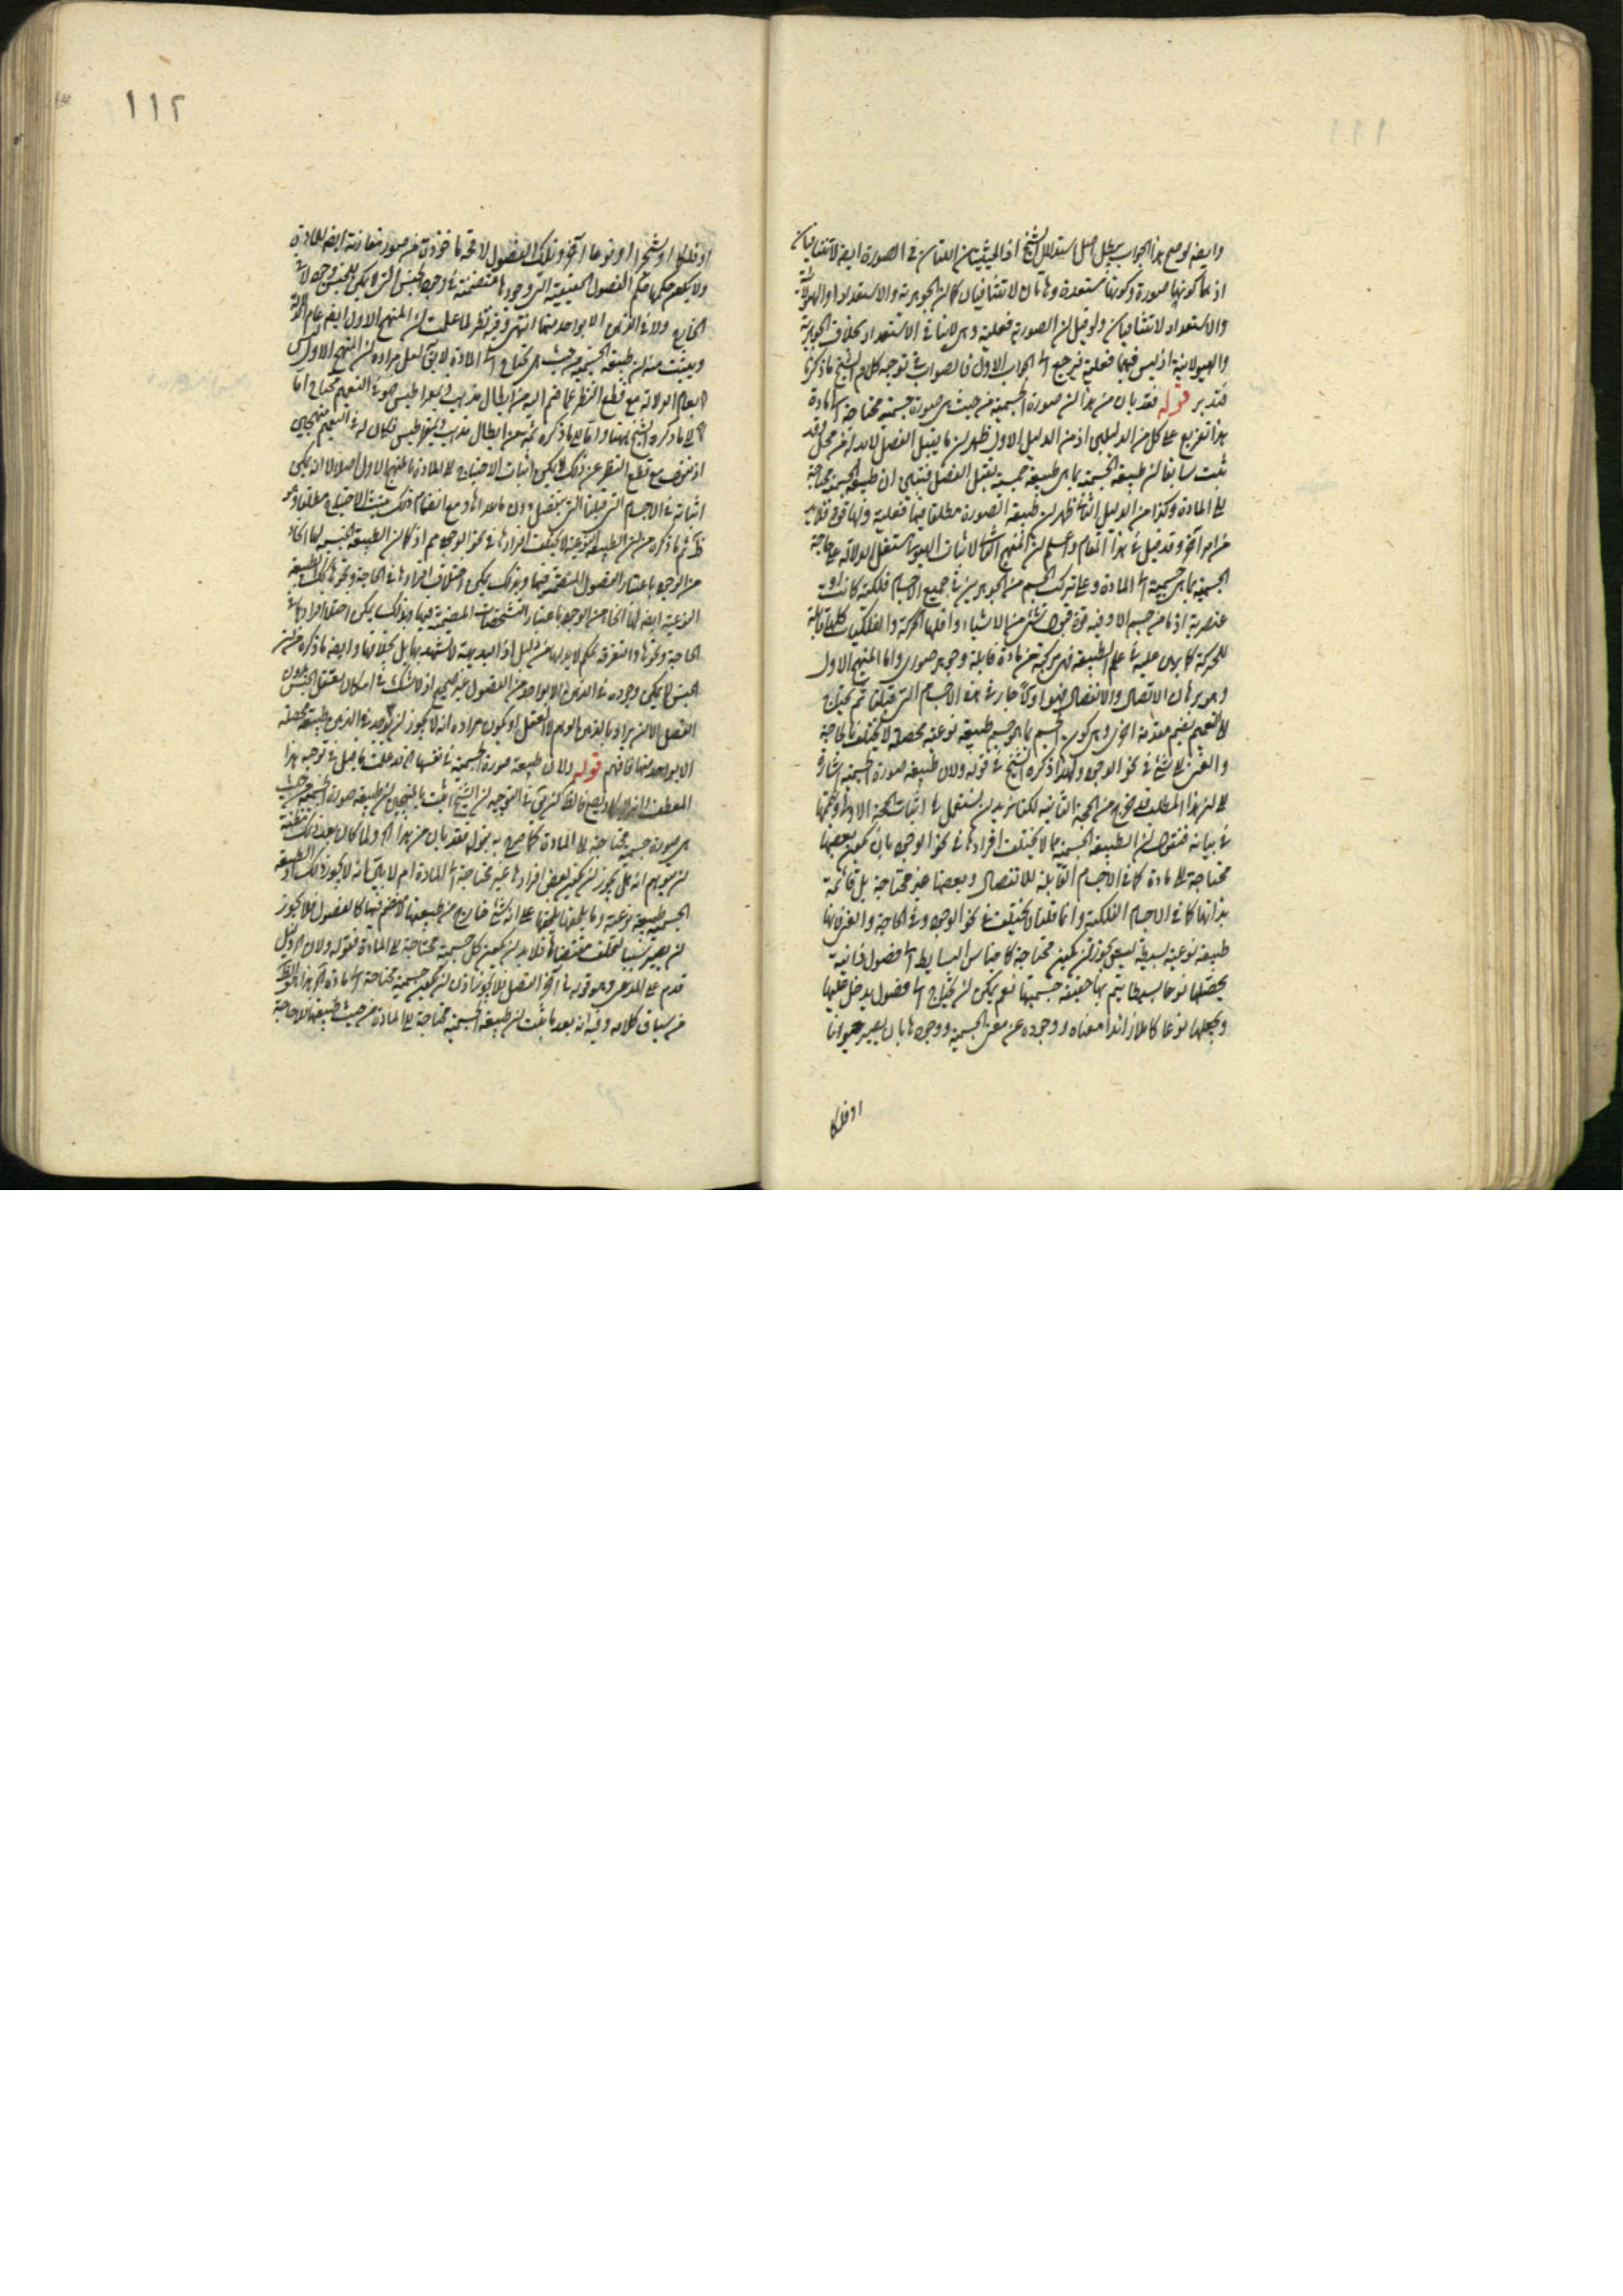 ١١١
وايضه لو صح هذا الجواب يبطل اصل استدلال الشيخ اذ الحيثيتان اللتان في الصورة ايضه لا تتنافيان
اذ هما كونها صورة وكونها مستعدة وهاتان لا تتنافيان كما ان الجوهرية والاستعداد او الهيولانية
والاستعداد لا تتنافيان ولو قيل ان الصورية فعلية وهي لا ينافي الاستعداد بخلاف الجوهرية
والهيولانية اذ ليس فيهما فعلية فيرجع الى الجواب الاول فالصواب في توجيه كلام الشيخ ما ذكرنا
فتدبر قوله فقد بان من هذا ان صورة الجسمية من حيث هي صورة جسمية محتاجة الى مادة
هذا تفريع على كل من الدليلين اذ من الدليل الاول ظهر ان ما يقبل الفصل لابد له من محل وقد
ثبت سابقا ان طبيعة الجسمية بما هي طبيعة جسمية يقبل الفصل فينتج ان طبيعة الجسمية محتاجة
الى المادة وكذا من الدليل الثاني ظهر ان طبيعة الصورة مطلقا فيها فعلية ولها قوة فلابد
من امر آخر وقد قيل في هذا المقام واعلم ان المنهج الثاني لاثبات الهيولى استقل بدلالته على حاجة
الجسمية بما هي جسمية الى المادة وعلى تركب الجسم من الجوهرين في جميع الاجسام فلكية كانت او
عنصرية اذ ما من جسم الا وفيه قوة قبول شيء من الاشياء واقلها الحركة والفلكيات كلها قابلة
للحركة كما برهن عليه في علم الطبيعة فهي مركبة من مادة قابلة وجوهر صوري واما المنهج الاول
وهو برهان الاتصال والانفصال فهو اولا جار في هذه الاجسام التي قبلنا ثم يحتاج
الى التعميم بضم مقدمة اخرى وهي كون الجسم بما هو جسم طبيعة نوعية محصلة لا يختلف في الحاجة
والغنى الى شيء في نحو الوجود ولهذا ذكره الشيخ في قوله ولان طبيعة صورة الجسمية اشارة
الى ان هذا المطلب قد خرج من الحجة الثانية لكنا نريد ان نستعمل في اثبات الحجة الاولى وتتميمها
في بيانه فنقول ان الطبيعة الجسمية مما لا يختلف افرادها في نحو الوجود بان يكون بعضها
محتاجة الى مادة كما في الاجسام القابلة للانفصال وبعضها غير محتاجة بل قائمة
بذاتها كما في الاجسام الفلكية وانما قلنا لا يختلف في نحو الوجود وفي الحاجة والغنى لانها
طبيعة نوعية بسيطة ليس يجوز ان يكون محتاجة كاجناس البسايط الى فصول ذاتية
يحصلها نوعا بسيطا يتم بها حقيقة جسميتها نعم يمكن ان يحتاج الى فصول يدخل عليها
ويجعلها نوعا كاملا زائدا معناه ووجوده عن معنى الجسمية ووجودها بان يصير حيوانا
او فلكا
١١٢
او فلكا او شجرا او نوعا آخر وتلك الفصول اللاحقة ماخوذة من صور مقارنة ايضه للمادة
ولا يكون حكمها حكم الفصول الحقيقية التي وجودها متضمنة في وجود الجنس الذي لا يمكن للجنس وجود لا في
الخارج ولا في الذهن الا بواحد منها انتهى وفيه نظر لما علمت ان المنهج الاول ايضه عام الدلالة
ويثبت منه ان طبيعة الجسمية من حيث هي تحتاج الى المادة لا يقال لعل مراده ان المنهج الاول ليس
بعام الدلالة مع قطع النظر عما ضم اليه من ابطال مذهب ذيمقراطيس فهو في التعميم محتاج اما
الى ما ذكره الشيخ ههنا واما الى ما ذكره ثمة من ابطال مذهب ذيمقراطيس فكان له في التعميم منهجين
اذ نقول مع قطع النظر عن ذلك لا يمكن اثبات الاحتياج الى المادة بالمنهج الاول اصلا لا انه يمكن
اثباته في الاجسام التي قبلنا التي ينفصل دون ما عداها ومع انضمام ذلك يثبت الاحتياج مطلقا وهو
ظ ثم ما ذكره من ان الطبيعة النوعية لا يختلف افرادها في نحو الوجود مم اذ كما ان الطبيعة الجنسية لها انحاء
من الوجود باعتبار الفصول المتضمنة فيها وبذلك يمكن اختلاف افرادها في الحاجة ونحوها كذلك الطبيعة
النوعية ايضه لها انحاء من الوجود باعتبار التشخصات المتضمنة فيها وبذلك يمكن اختلاف افرادها في
الحاجة ونحوها والتفرقة تحكم لابد لها من دليل اذ البديهة لا تشهد بها بل بخلافها وايضه ما ذكره من ان
الجنس لا يمكن وجوده في الذهن الا بواحد من الفصول غير صحيح اذ لا شك في امكان تعقل الجنس بدون
الفصل الا ان يراد بالذهن الوهم لا العقل او يكون مراده انه لا يجوز ان يوجد في الذهن طبيعة محصلة
الا بواحد منها فافهم قوله ولان طبيعة صورة الجسمية في نفسها الخ قد علمت ما قيل في توجيه هذا
العطف وانه لا يصح فالظ ان يق في التوجيه ان الشيخ اثبت بالمنهجين ان طبيعة صورة الجسمية من حيث
هي صورة جسمية محتاجة الى المادة كما صرح به بقوله فقد بان من هذا الخ ولما كان بعد ذلك مظنة
ان يتوهم انه هل يجوز ان يكون بعض افرادها غير محتاجة الى المادة ام لا بين انه لا يجوز ذلك اذ الطبيعة
الجسمية طبيعة نوعية وما يلحقها يلحقها على انه شيء خارج من طبيعتها لا منضم فيها كالفصول فلا يجوز
ان يصير سببا لتخلف مقتضاها فلابد ان يكون كل جسمية محتاجة الى المادة فقوله ولان الخ دليل
قدم على المدعى وهو قوله في آخر الفصل فلا يجوز اذن ان يكون جسمية محتاجة الى مادة الخ هذا هو الظ
من سياق كلامه وفيه انه بعد ما اثبت ان طبيعة الجسمية محتاجة الى المادة من حيث طبيعتها فلا حاجة